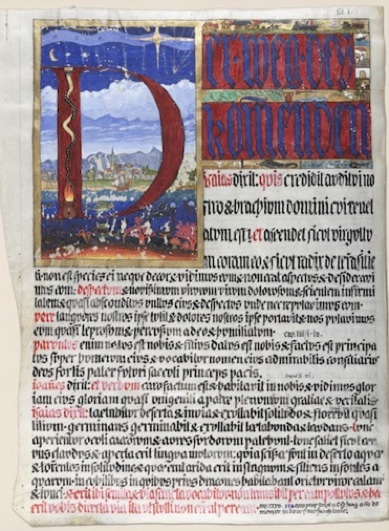 Der Weg des
Kommenden
isaias dixit: quis credidit auditui no
stro & brachium domini cui revel
atum est? et ascendet sicut virgultu
m coram eo & sicut radix de terra sitie
nti non est species ei neque decor & vidimus eum & non erat aspectus & desideravi
mus eum: despectum & novissimum virorum virum dolorum & scientem infirmi
tatem & quasi absconditus vultus eius & despectus unde nec reputavimus eum.
vere languores nostros ipse tulit & dolores nostros ipse portavit & nos putavimus
eum quasi leprosum & percussum a deo & humiliatum.
parvulus enim natus est nobis & filius datus est nobis & factus est principa
tus super humerum eius & vocabitur nomen eius admirabilis consiliarius
deus fortis pater futuri saeculi princeps pacis.
ioannes dixit: et verbum caro factum est & habitavit in nobis & vidimus glor
iam eius gloriam quasi unigeniti a patre plenum gratiae & veritatis.
isaias dixit: laetabitur deserta & invia & exultabit solitudo & florebit quasi
lilium. germinans germinabit & exultabit laetabunda & laudans. tunc
aperientur oculi caecorum & aures sordorum patebunt. tunc saliet sicut cer
vus claudus & aperta erit lingua mutorum: quia scissae sunt in deserto aquae
& torrentes in solitudine & quae erat arida in stagnum & sitiens in fontes a
quarum. in cubilibus in quibus prius dracones habitabant orietur viror calami
& iunci. & erit ibi semita & via sancta vocabitur. non transibit per eam pollutus. & haec
erit vobis directa via ita ut stulti non errent per eam.